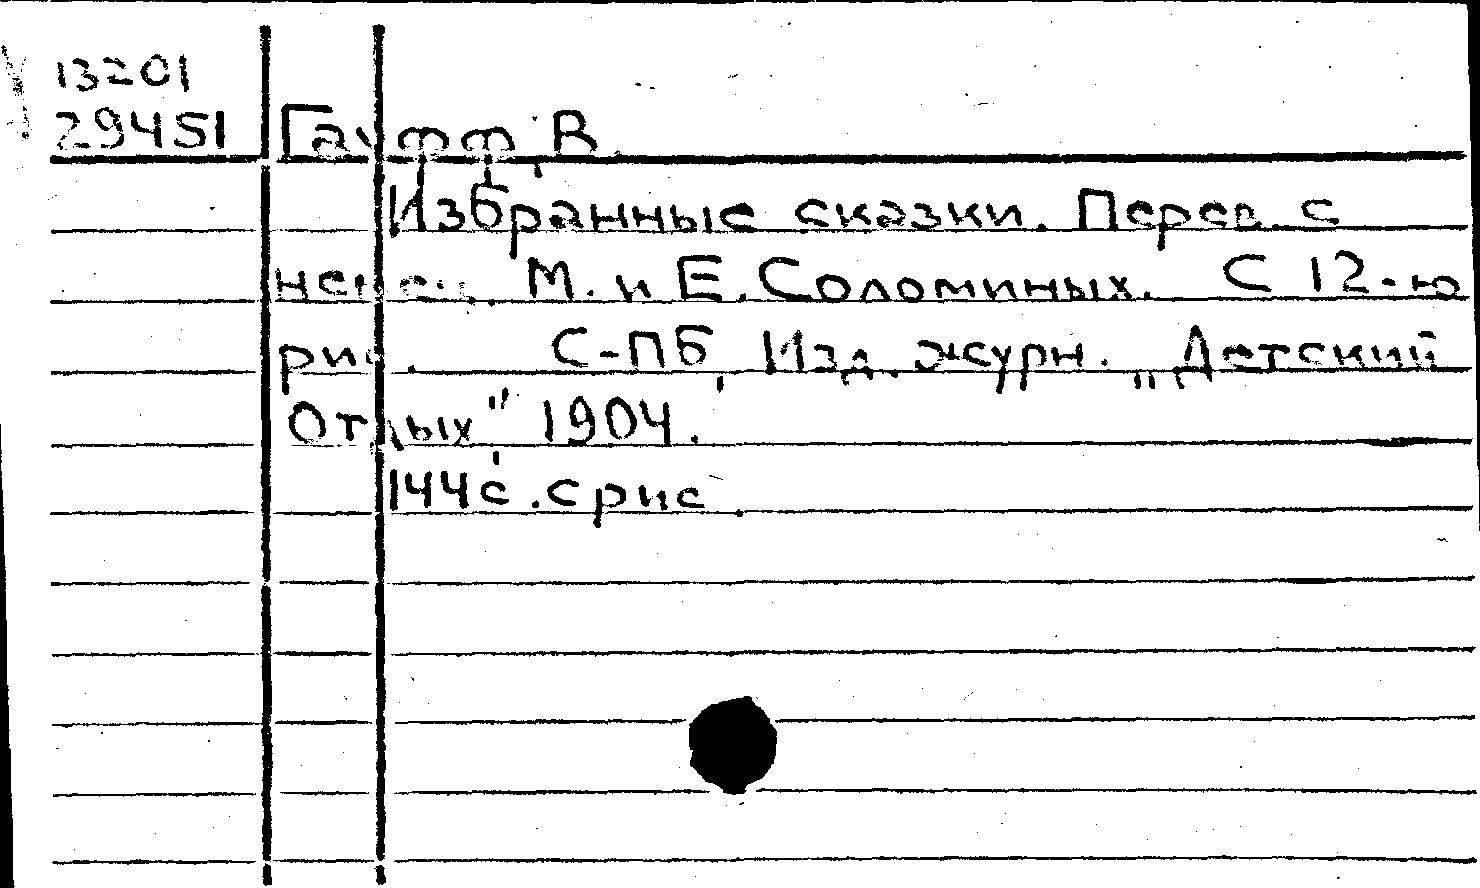 13201
29451 Гауфф, В.
Избранные сказки. Перев. с
немец. М. и Е. Соломиных. С 12-ю
рис. С-ПБ, Изд. журн. „Детский
Отдых" 1904.
144с. с рис.